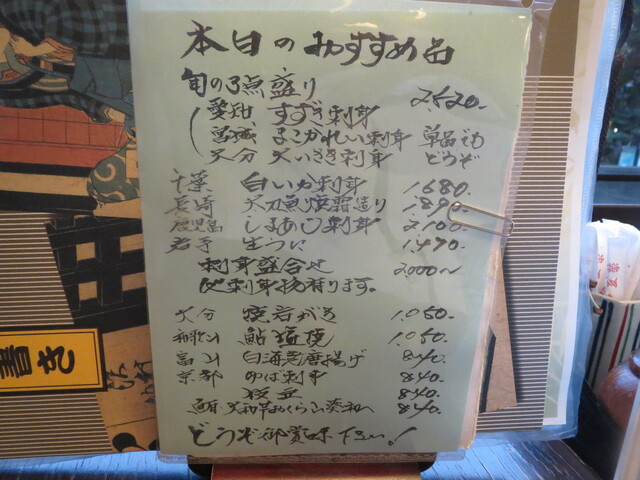 本日のおすすめ品
旬の3点盛り 2,520-
愛知 すずき刺身
宮城 まこがれい刺身 単品でも
大分 大いさき刺身 どうぞ
千葉 白いか刺身 1,680-
長崎 太刀魚焼霜造り 1,890-
鹿児島 しまあじ刺身 2,100-
岩手 生うに 1,470-
刺身盛合せ 2,000～
他刺身物有ります。
大分 焼岩がき 1,050-
和歌山 鮎塩焼 1,050-
富山 白海老唐揚げ 840-
京都 ゆば刺身 840-
枝豆 840-
840-
どうぞ御賞味下さい!
書き